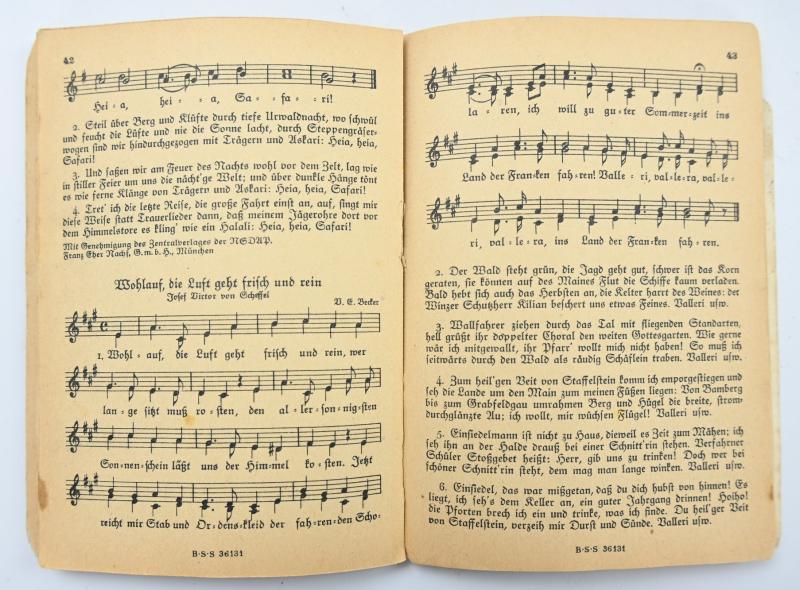 42
Hei⸗a, hei ⸗ a, Sa ⸗ fa ⸗ ri!
2. Steil über Berg und Klüfte durch tiefe Urwaldnacht, wo schwül
und feucht die Lüfte und nie die Sonne lacht, durch Steppengräser⸗
wogen sind wir hindurchgezogen mit Trägern und Askari: Heia, heia,
Safari!
3. Und saßen wir am Feuer des Nachts wohl vor dem Zelt, lag wie
in stiller Feier um uns die nächt'ge Welt; und über dunkle Hänge tönt
es wie ferne Klänge von Trägern und Askari: Heia, heia, Safari!
4. Tret' ich die letzte Reise, die große Fahrt einst an, auf, singt mir
diese Weise statt Trauerlieder dann, daß meinem Jägerohre dort vor
dem Himmelstore es kling' wie ein Halali: Heia, heia, Safari!
Mit Genehmigung des Zentralverlages der NSDAP.
Franz Eher Nachf., G.m.b.H., München
Wohlauf, die Luft geht frisch und rein
Josef Victor von Scheffel
V. E. Becker
1. Wohl ⸗ auf, die Luft geht frisch und rein, wer
lan⸗ge sitzt muß ro⸗sten, den al⸗ler⸗son⸗nig⸗sten
Son⸗nen⸗schein läßt uns der Him⸗mel ko⸗sten. Jetzt
reicht mir Stab und Or⸗dens⸗kleid der fah⸗ren⸗den Scho⸗
B·S·S 36131
43
la ⸗ ren, ich will zu gu⸗ter Som⸗mer⸗zeit ins
Land der Fran⸗ken fah⸗ren! Valle⸗ri, val⸗le⸗ra, val⸗le⸗
ri, val⸗le⸗ra, ins Land der Fran⸗ken fah⸗ren.
2. Der Wald steht grün, die Jagd geht gut, schwer ist das Korn
geraten, sie können auf des Maines Flut die Schiffe kaum verladen.
Bald hebt sich auch das Herbsten an, die Kelter harrt des Weines: der
Winzer Schutzherr Kilian beschert uns etwas Feines. Valleri usw.
3. Wallfahrer ziehen durch das Tal mit fliegenden Standarten,
hell grüßt ihr doppelter Choral den weiten Gottesgarten. Wie gerne
wär ich mitgewallt, ihr Pfarr' wollt mich nicht haben! So muß ich
seitwärts durch den Wald als räudig Schäflein traben. Valleri usw.
4. Zum heil'gen Veit von Staffelstein komm ich emporgestiegen und
seh die Lande um den Main zum meinen Füßen liegen: Von Bamberg
bis zum Grabfeldgau umrahmen Berg und Hügel die breite, strom⸗
durchglänzte Au; ich wollt, mir wüchsen Flügel! Valleri usw.
5. Einsiedelmann ist nicht zu Haus, dieweil es Zeit zum Mähen; ich
seh ihn an der Halde drauß bei einer Schnitt'rin stehen. Verfahrner
Schüler Stoßgebet heißt: Herr, gib uns zu trinken! Doch wer bei
schöner Schnitt'rin steht, dem mag man lange winken. Valleri usw.
6. Einsiedel, das war mißgetan, daß du dich hubst von hinnen! Es
liegt, ich seh's dem Keller an, ein guter Jahrgang drinnen! Hoiho!
die Pforten brech ich ein und trinke, was ich finde. Du heil'ger Veit
von Staffelstein, verzeih mir Durst und Sünde. Valleri usw.
B·S·S 36131